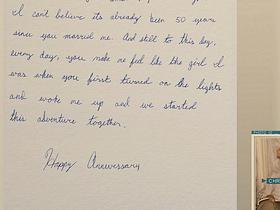 I can't believe its already been 50 years
since you married me. And still to this day,
every day, you make me feel like the girl I
was when you first turned on the lights
and woke me up and we started
this adventure together.
Happy Anniversary